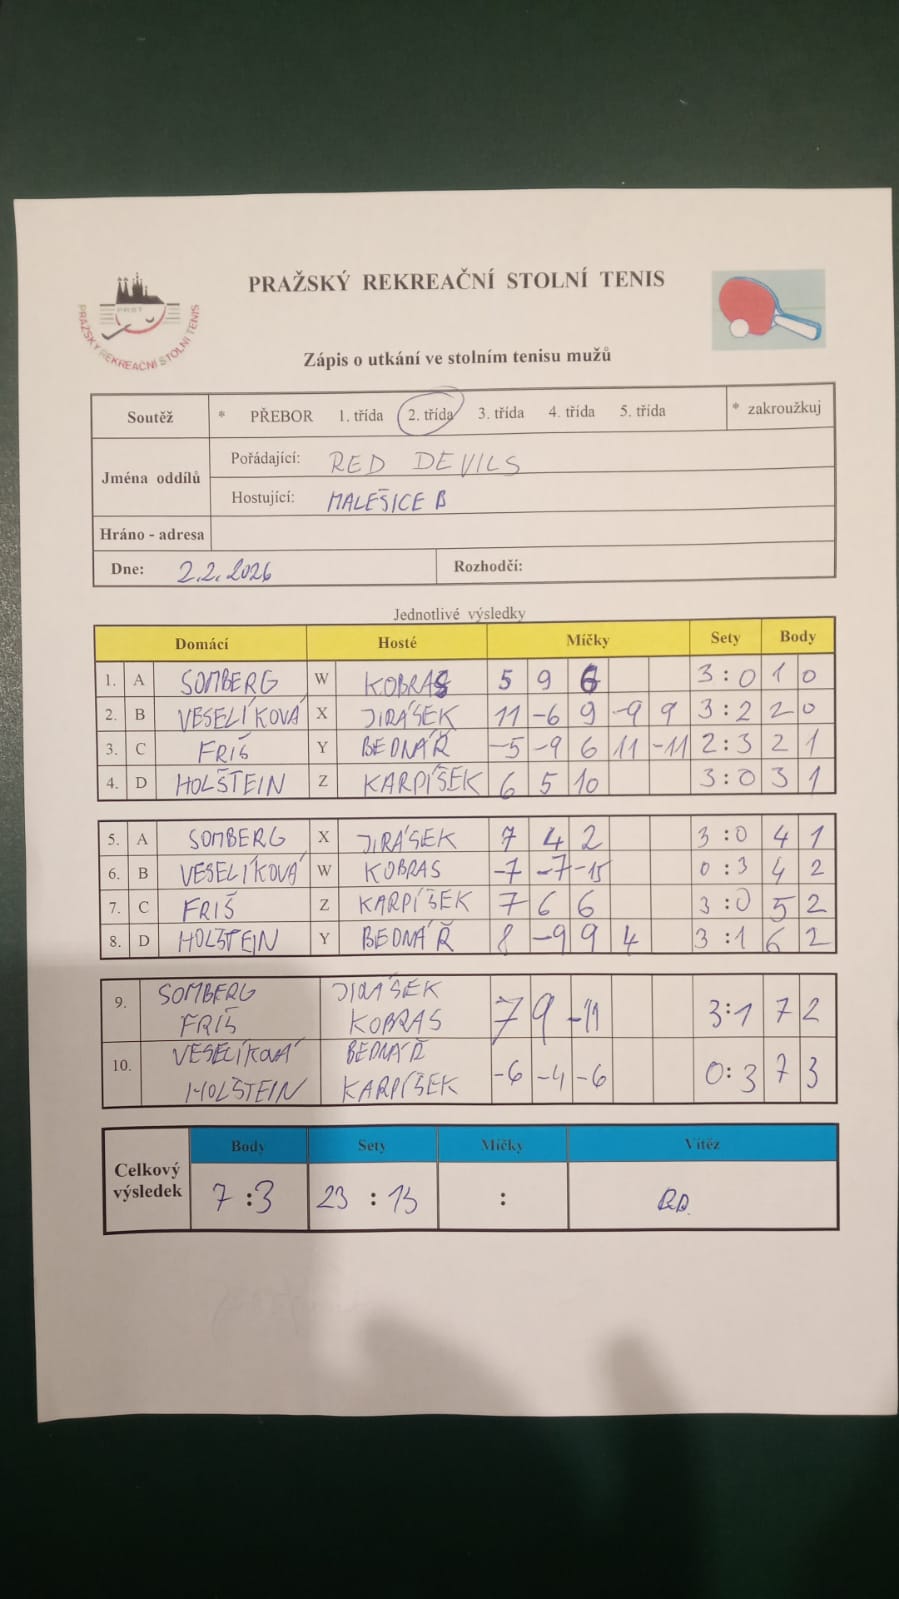 PRAŽSKÝ REKREAČNÍ STOLNÍ TENIS
PRST
PRAŽSKÝ REKREAČNÍ STOLNÍ TENIS
Zápis o utkání ve stolním tenisu mužů
Soutěž * PŘEBOR 1. třída 2. třída 3. třída 4. třída 5. třída * zakroužkuj
Jména oddílů
Pořádající: RED DEVILS
Hostující: MALEŠICE B
Hráno - adresa
Dne: 2.2.2026 Rozhodčí:
Jednotlivé výsledky
Domácí Hosté Míčky Sety Body
1. A SOMBERG W KOBRAS 5 9 6 3 : 0 1 0
2. B VESELÍKOVÁ X JIRÁSEK 11 -6 9 -9 9 3 : 2 2 0
3. C FRIŠ Y BEDNÁŘ -5 -9 6 11 -11 2 : 3 2 1
4. D HOLŠTEIN Z KARPÍŠEK 6 5 10 3 : 0 3 1
5. A SOMBERG X JIRÁSEK 7 4 2 3 : 0 4 1
6. B VESELÍKOVÁ W KOBRAS -7 -7 -15 0 : 3 4 2
7. C FRIŠ Z KARPÍŠEK 7 6 6 3 : 0 5 2
8. D HOLŠTEIN Y BEDNÁŘ 8 -9 9 4 3 : 1 6 2
9. SOMBERG JIRÁSEK
FRIŠ KOBRAS 7 9 -11 3:1 7 2
10. VESELÍKOVÁ BEDNÁŘ
HOLŠTEIN KARPÍŠEK -6 -4 -6 0:3 7 3
Celkový výsledek
Body Sety Míčky Vítěz
7 : 3 23 : 13 : RD.